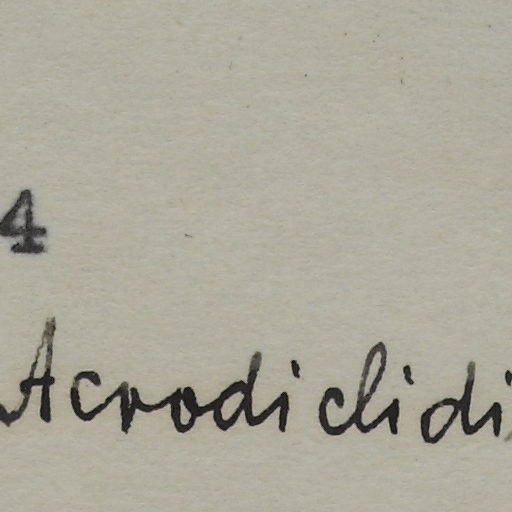 4
Acrodiclidi